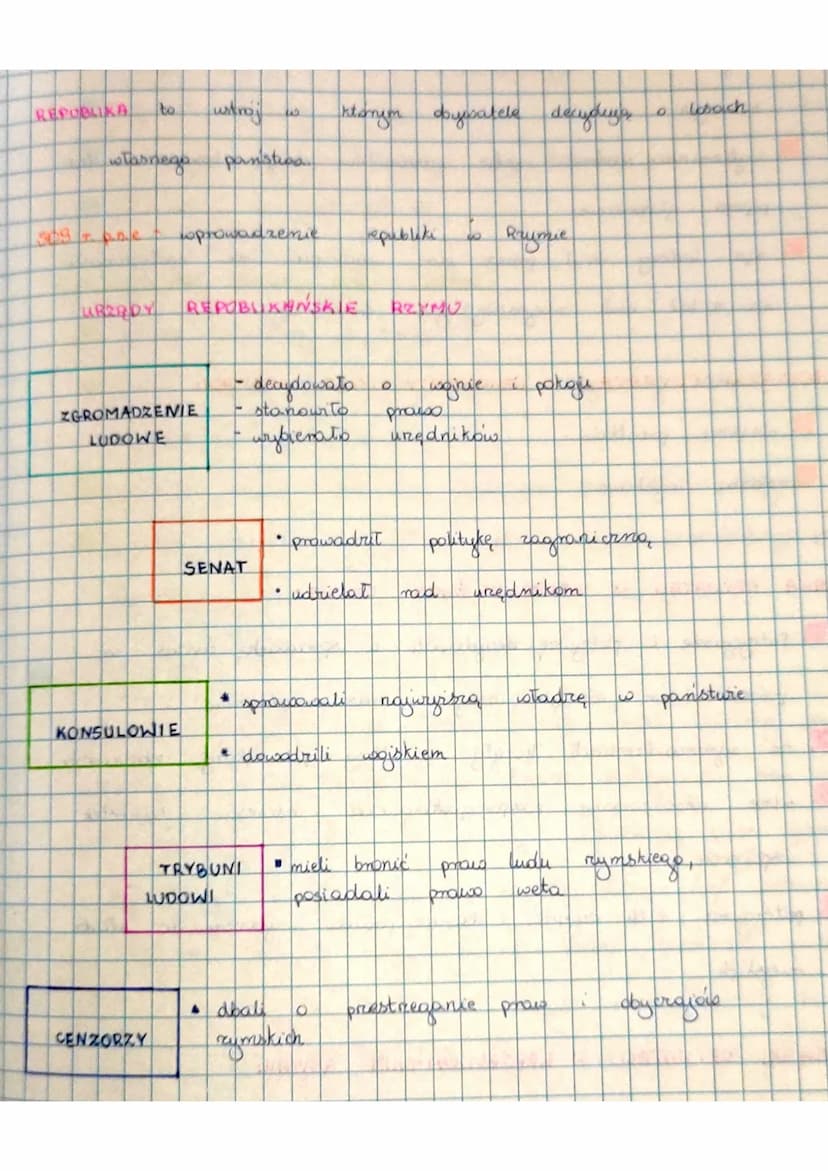 REPUBLIKA to ustrój w którym obywatele decydują o losach
własnego państwa.
509 r. p.n.e - wprowadzenie republiki w Rzymie
URZĘDY REPUBLIKAŃSKIE RZYMU
ZGROMADZENIE LUDOWE
- decydowało o wojnie i pokoju
- stanowiło prawo
- wybierało urzędników
SENAT
• prowadził politykę zagraniczną
• udzielał rad urzędnikom
KONSULOWIE
* sprawowali najwyższą władzę w państwie
* dowodzili wojskiem
TRYBUNI LUDOWI
▪ mieli bronić praw ludu rzymskiego,
posiadali prawo weta
CENZORZY
▲ dbali o przestrzeganie praw i obyczajów
rzymskich